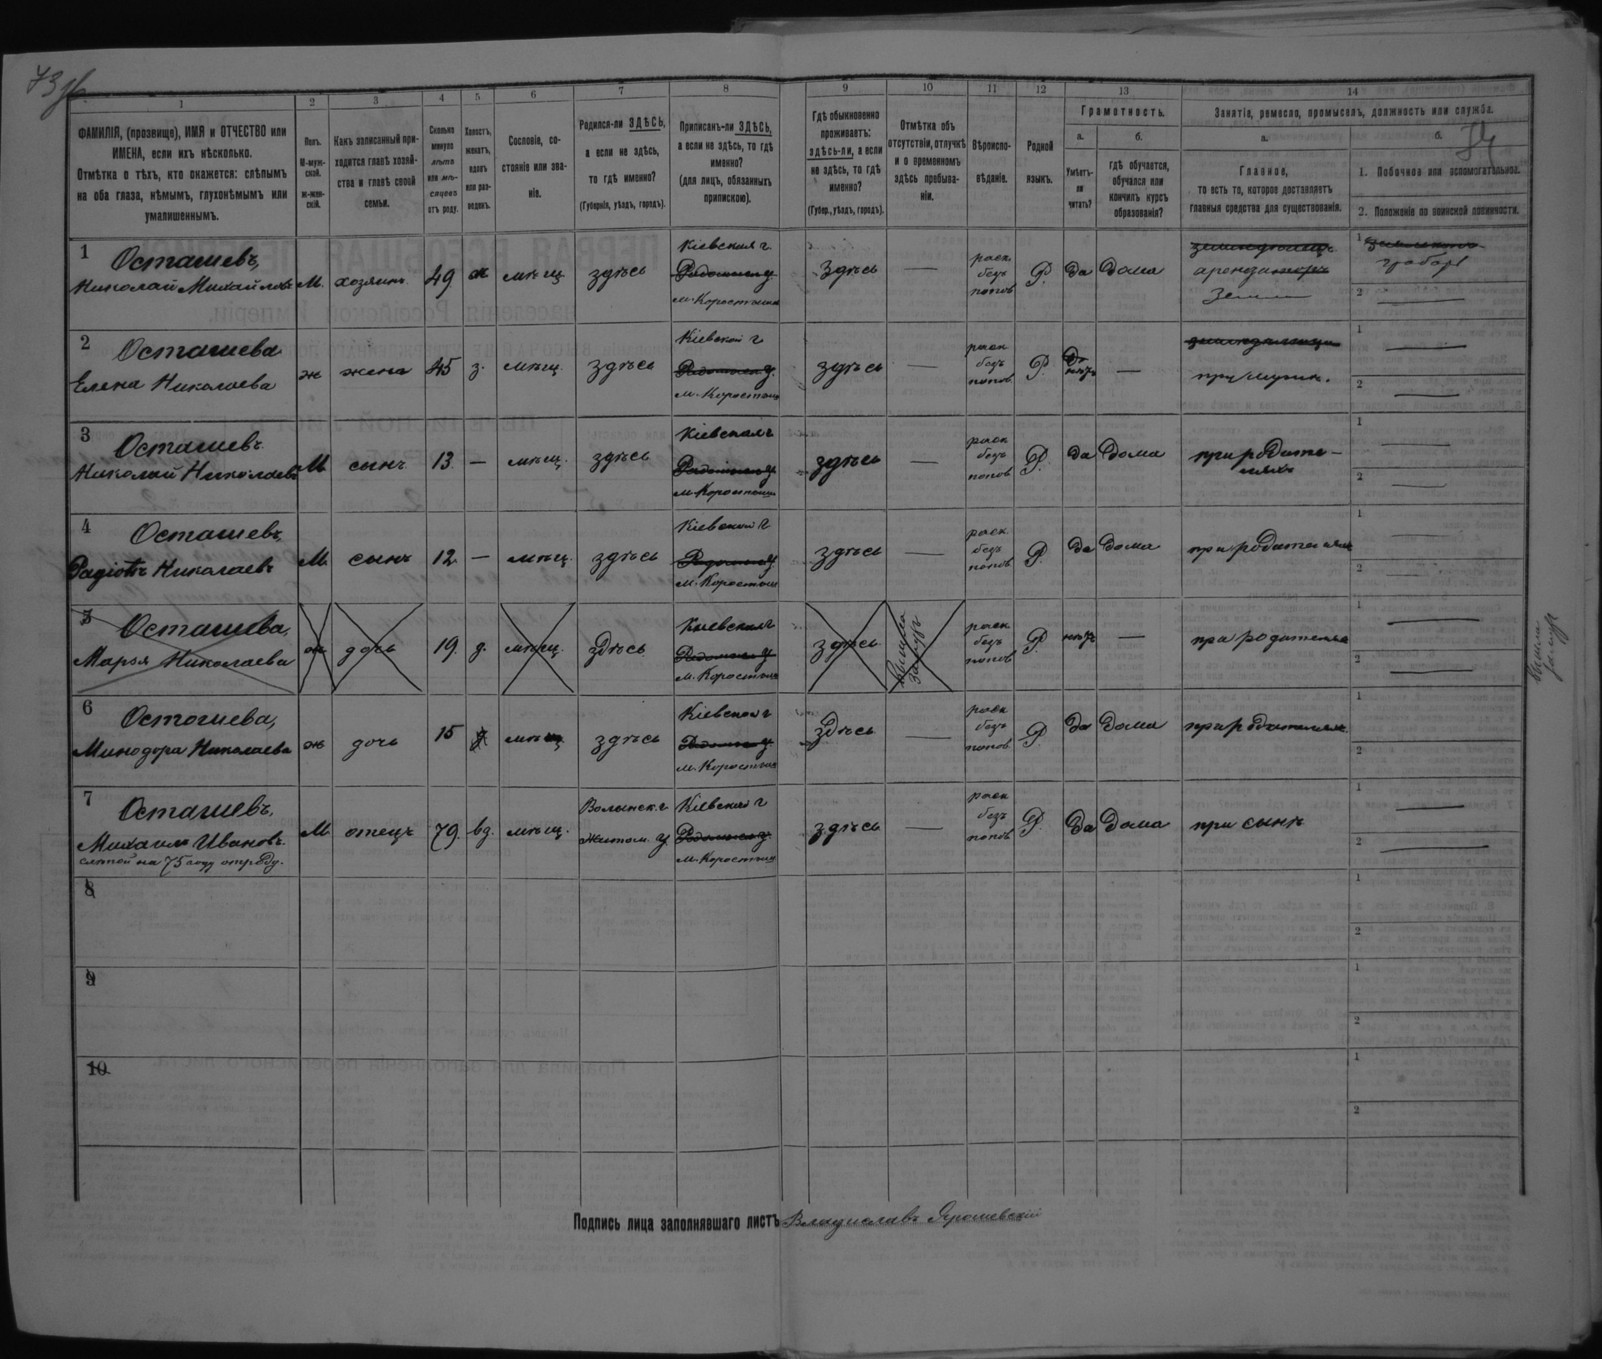 73
1 2 3 4 5 6 7 8 9 10 11 12 13 14
ФАМИЛІЯ, (прозвище), ИМЯ и ОТЧЕСТВО или
ИМЕНА, если ихъ нѣсколько.
Отмѣтка о тѣхъ, кто окажется: слѣпымъ
на оба глаза, нѣмымъ, глухонѣмымъ или
умалишеннымъ.
Полъ.
М-муж-
ской.
ж-жен-
скій.
Какъ записанный при-
ходится главѣ хозяй-
ства и главѣ своей
семьи.
Сколько
минуло
лѣтъ
или мѣ-
сяцевъ
отъ роду.
Холостъ,
женатъ,
вдовъ
или раз-
веденъ.
Сословіе, со-
стояніе или зва-
ніе.
Родился-ли ЗДѢСЬ,
а если не здѣсь,
то гдѣ именно?
(Губернія, уѣздъ, городъ).
Приписанъ-ли ЗДѢСЬ,
а если не здѣсь, то гдѣ
именно?
(для лицъ, обязанныхъ
припискою).
Гдѣ обыкновенно
проживаетъ:
здѣсь-ли, а если
не здѣсь, то гдѣ
именно?
(Губер., уѣздъ, городъ).
Отмѣтка объ
отсутствіи, отлучкѣ
и о временномъ
здѣсь пребыва-
ніи.
Вѣроиспо-
вѣданіе.
Родной
языкъ.
Грамотность.
а.
Умѣетъ-
ли
читать?
б.
гдѣ обучается,
обучался или
кончилъ курсъ
образованія?
Занятіе, ремесло, промыселъ, должность или служба.
а.
Главное,
то есть то, которое доставляетъ
главныя средства для существованія.
б.
1. Побочное или вспомогательное.
2. Положеніе по воинской повинности.
1 Осташевъ, Николай Михайловъ М. хозяинъ 49 мѣщ здѣсь Кіевская г м. Коростышев здѣсь — раск безъ попов Р. да Дома аренда земли
2 Осташева Елена Николаева ж жена 45 з. мѣщ. здѣсь Кіевской г м. Коростыш здѣсь — раск безъ попов. Р. нѣтъ — при мужѣ.
3 Осташевъ Николай Николаевъ М сынъ 13 — мѣщ. здѣсь Кіевская г м. Коростыш здѣсь — раск безъ попов Р. да Дома при родите-ляхъ
4 Осташевъ Николаевъ М. сынъ 12 — мѣщ. здѣсь Кіевской г м. Коростыш здѣсь — раск безъ попов Р. да Дома при родителях
5 Осташева, Марья Николаева ж дочь 19. д. мѣщ. здѣсь Кіевская г м. Коростыш здѣсь вышла замужъ раск безъ попов Р нѣтъ — при родителях
6 Осташева, Минодора Николаева ж дочь 15 мѣщ здѣсь Кіевской г м. Коростыш здѣсь — раск безъ попов Р. да Дома при родителях
7 Осташевъ, Михаилъ Ивановъ. слѣпой на 75 году отроду. М отецъ 79. вд. мѣщ. Волынск. г Житом. у. Кіевской г м. Коростыш здѣсь — раск безъ попов Р. да Дома при сынѣ
вышла замужъ
8
9
10
Подпись лица заполнявшаго листъ Владиславъ Ярошевскій